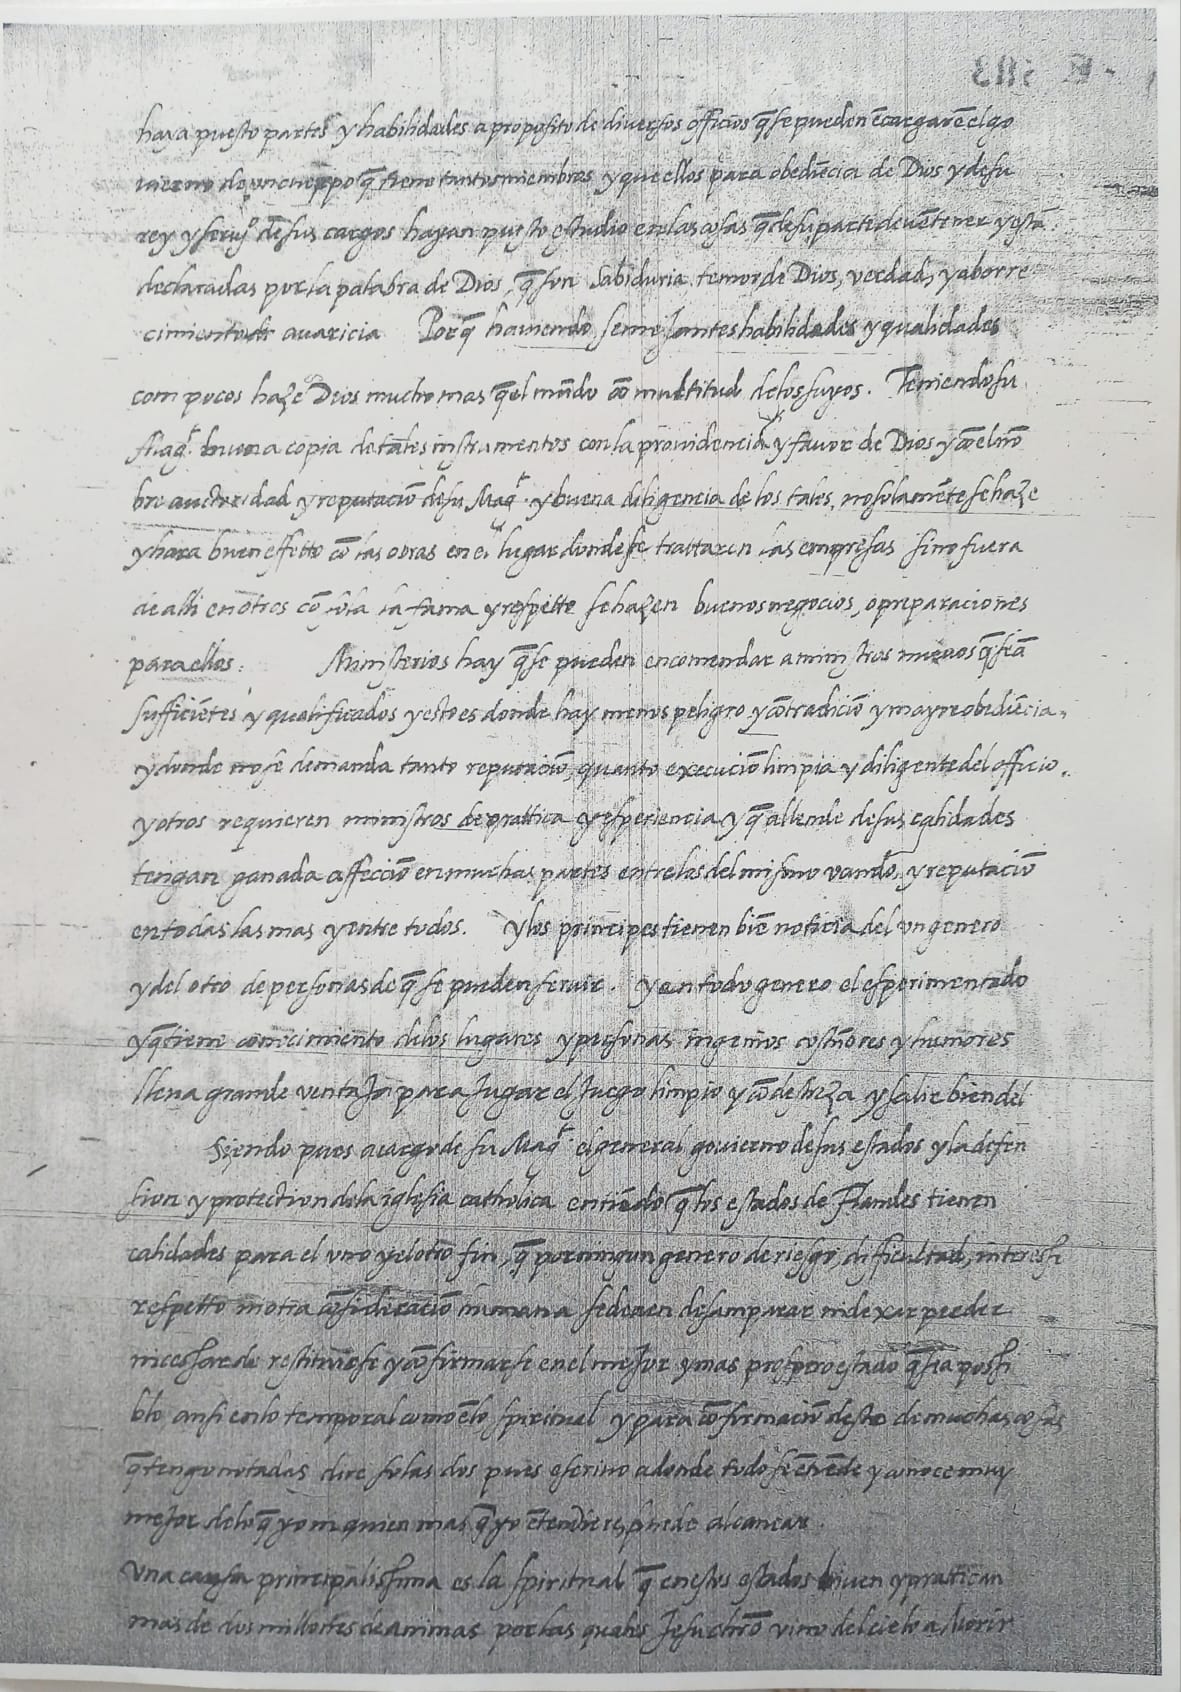 haya puesto partes y habilidades a proposito de diversos officios q̃ se pueden ẽcargar ẽ el go
uierno de un cuerpo q̃ tiene tantos miembros y que ellos para obediẽcia de Dios y de su
rey y seruiº de sus cargos hayan puesto estudio en las cosas q̃ de su parte deuẽ tener y está
declaradas por la palabra de Dios, q̃ son sabiduria, temor de Dios, verdad, y aborre
cimiento de auaricia Porq̃ hauiendo semejantes habilidades y qualidades
com pocos haze Dios mucho mas q̃ el mũdo cõ multitud de los suyos. Teniendo su
Magᵈ. buena copia de tales instrumentos con la prouidencia y favor de Dios y cõ el nõ
bre auctoridad y reputaciõ de su Magᵈ. y buena diligencia de los tales, no solamẽte se haze
y hara buen effetto cõ las obras en el lugar donde se trattaren las empresas sino fuera
de alli en otros cõ sola la fama y respetto se hazen buenos negocios, o preparaciones
para ellos: Ministerios hay q̃ se pueden encomendar a ministros nueuos q̃ seã
sufficiẽtes y qualificados y esto es donde hay menos peligro y cõtradiciõ y mayor obediẽcia,
y donde no se demanda tanto reputaciõ, quanto execuciõ limpia y diligente del officio.
y otros requieren ministros de prattica y esperiencia y q̃ allende de sus calidades
tengan ganada affecciõ en muchas partes entre los del mismo vando, y reputaciõ
en todas las mas y entre todos. Y los principes tienen biẽ noticia del un genero
y del otro de personas de q̃ se pueden seruir. Y en todo genero el esperimentado
y q̃ tiene conocimiento de los lugares y personas ingenios costũbres y humores
lleua grande ventaja para jugar el juego limpio y cõ destreza y salir bien del
Siendo pues a cargo de su Magᵈ. el general gouierno de sus estados y la defen
sion y protection de la iglesia catholica entiẽdo q̃ los estados de Flandes tienen
calidades para el uno y el otro fin, q̃ por ningun genero de riesgo, difficultad, interesse
respetto ni otra cõsideraciõ humana se deuen desamparar ni dexar perder
 restituirse y cõfirmarse en el mejor y mas prospero estado q̃ sea possi
ble ansi en lo temporal como ẽ lo spiritual y para cõfirmaciõ desto de muchas cosas
q̃ tengo notadas dire solas dos pues escriuo a donde todo se ẽtiẽde y conoce muy
mejor de lo q̃ yo ni quien mas q̃ yo ẽtendiere, puede alcançar.
Una causa principalissima es la spiritual q̃ en estos estados biuen y pratican
mas de dos millones de animas por las quales Jesu chrõ vino del cielo a morir